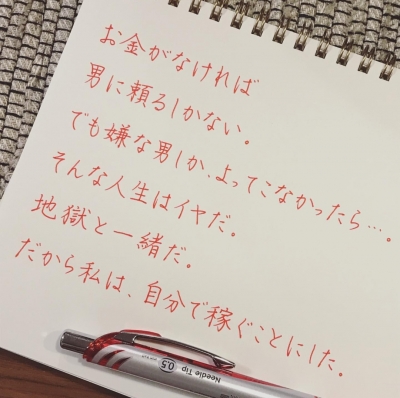 お金がなければ
男に頼るしかない。
でも嫌な男しか、よってこなかったら…。
そんな人生はイヤだ。
地獄と一緒だ。
だから私は、自分で稼ぐことにした。
Needle Tip 0.5